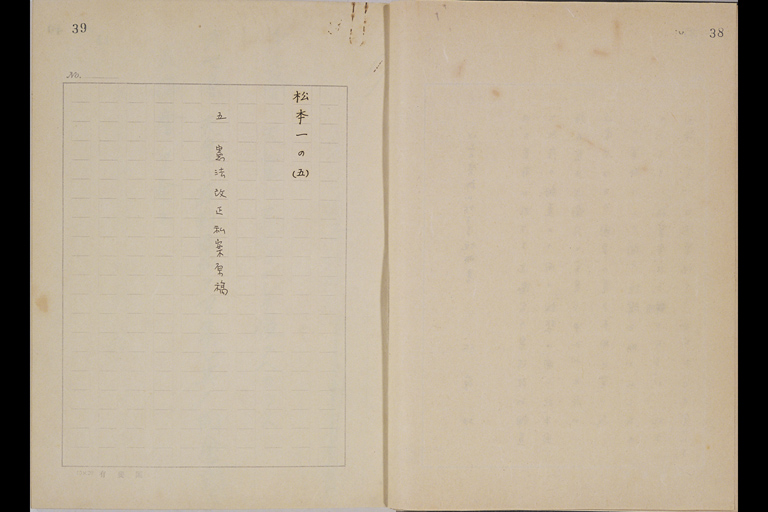 38
39
No.
松本一の(五)
五 憲法改正私案原稿